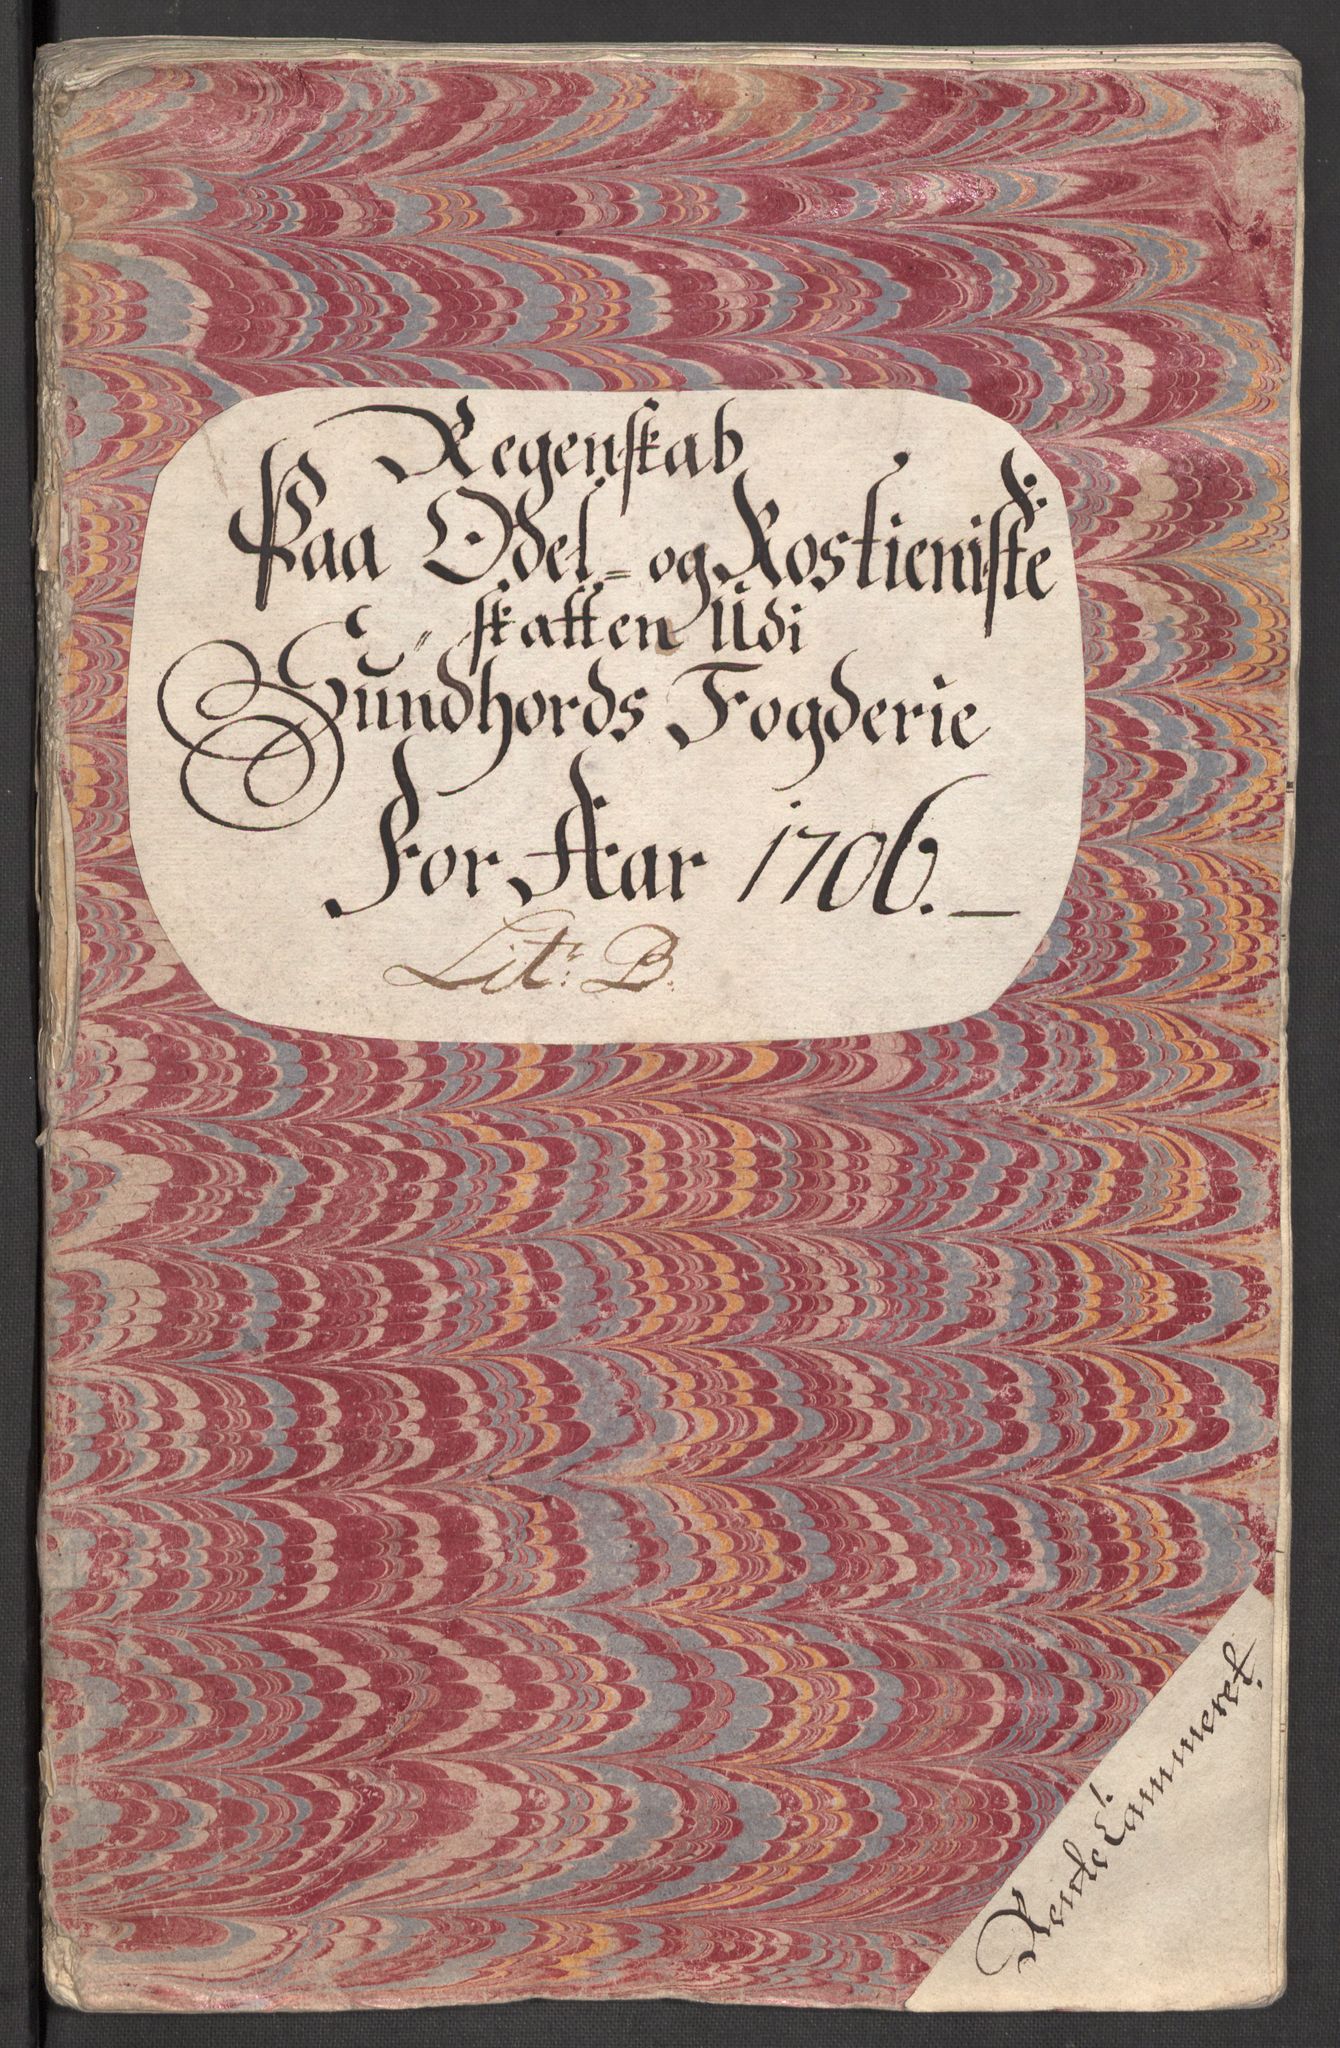 Regenskab
Paa Odel- og Rostieniste
skatten Udi
Sundhords Fogderie
For Aar 1706.
Litr: B.
Rente Cammeret.